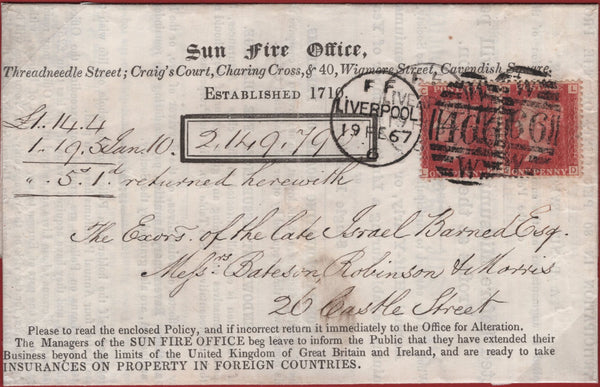 Sun Fire Office,
Threadneedle Street; Craig's Court, Charing Cross, & 40, Wigmore Street, Cavendish Square.
ESTABLISHED 1710.
£1.14.4
1.19.5 Jan. 10.
2.149.79
" . 5s 1d returned herewith
LIVERPOOL
19 FE 67
466
ONE PENNY
The Exors. of the late Israel Barned Esq.
Messrs Bateson, Robinson & Morris
26 Castle Street
Please to read the enclosed Policy, and if incorrect return it immediately to the Office for Alteration.
The Managers of the SUN FIRE OFFICE beg leave to inform the Public that they have extended their
Business beyond the limits of the United Kingdom of Great Britain and Ireland, and are ready to take
INSURANCES ON PROPERTY IN FOREIGN COUNTRIES.